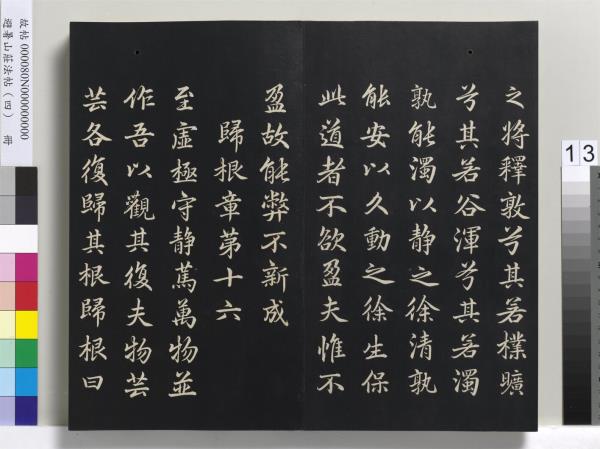 之将釋敦兮其若樸曠
兮其若谷渾兮其若濁
孰能濁以静之徐清孰
能安以久動之徐生保
此道者不欲盈夫惟不
盈故能弊不新成
歸根章第十六
至虛極守静篤萬物並
作吾以觀其復夫物芸
芸各復歸其根歸根曰
故帖 000080N000000000
避暑山莊法帖（四） 冊
13